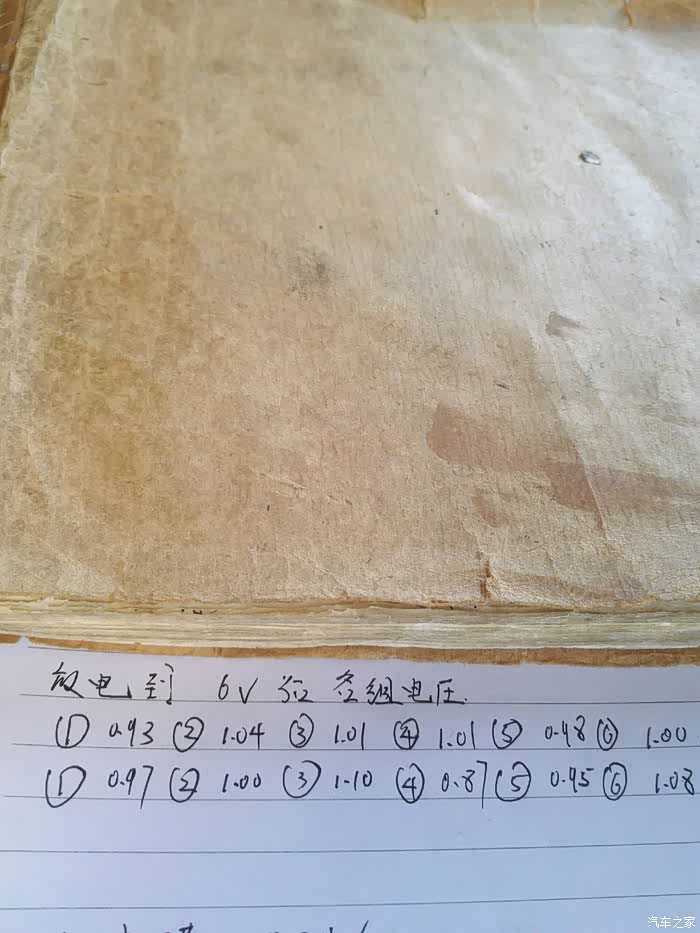 放电到 6V 后 各组电压.
① 0.93 ② 1.04 ③ 1.01 ④ 1.01 ⑤ 0.98 ⑥ 1.00
① 0.97 ② 1.00 ③ 1.10 ④ 0.87 ⑤ 0.95 ⑥ 1.08
汽车之家